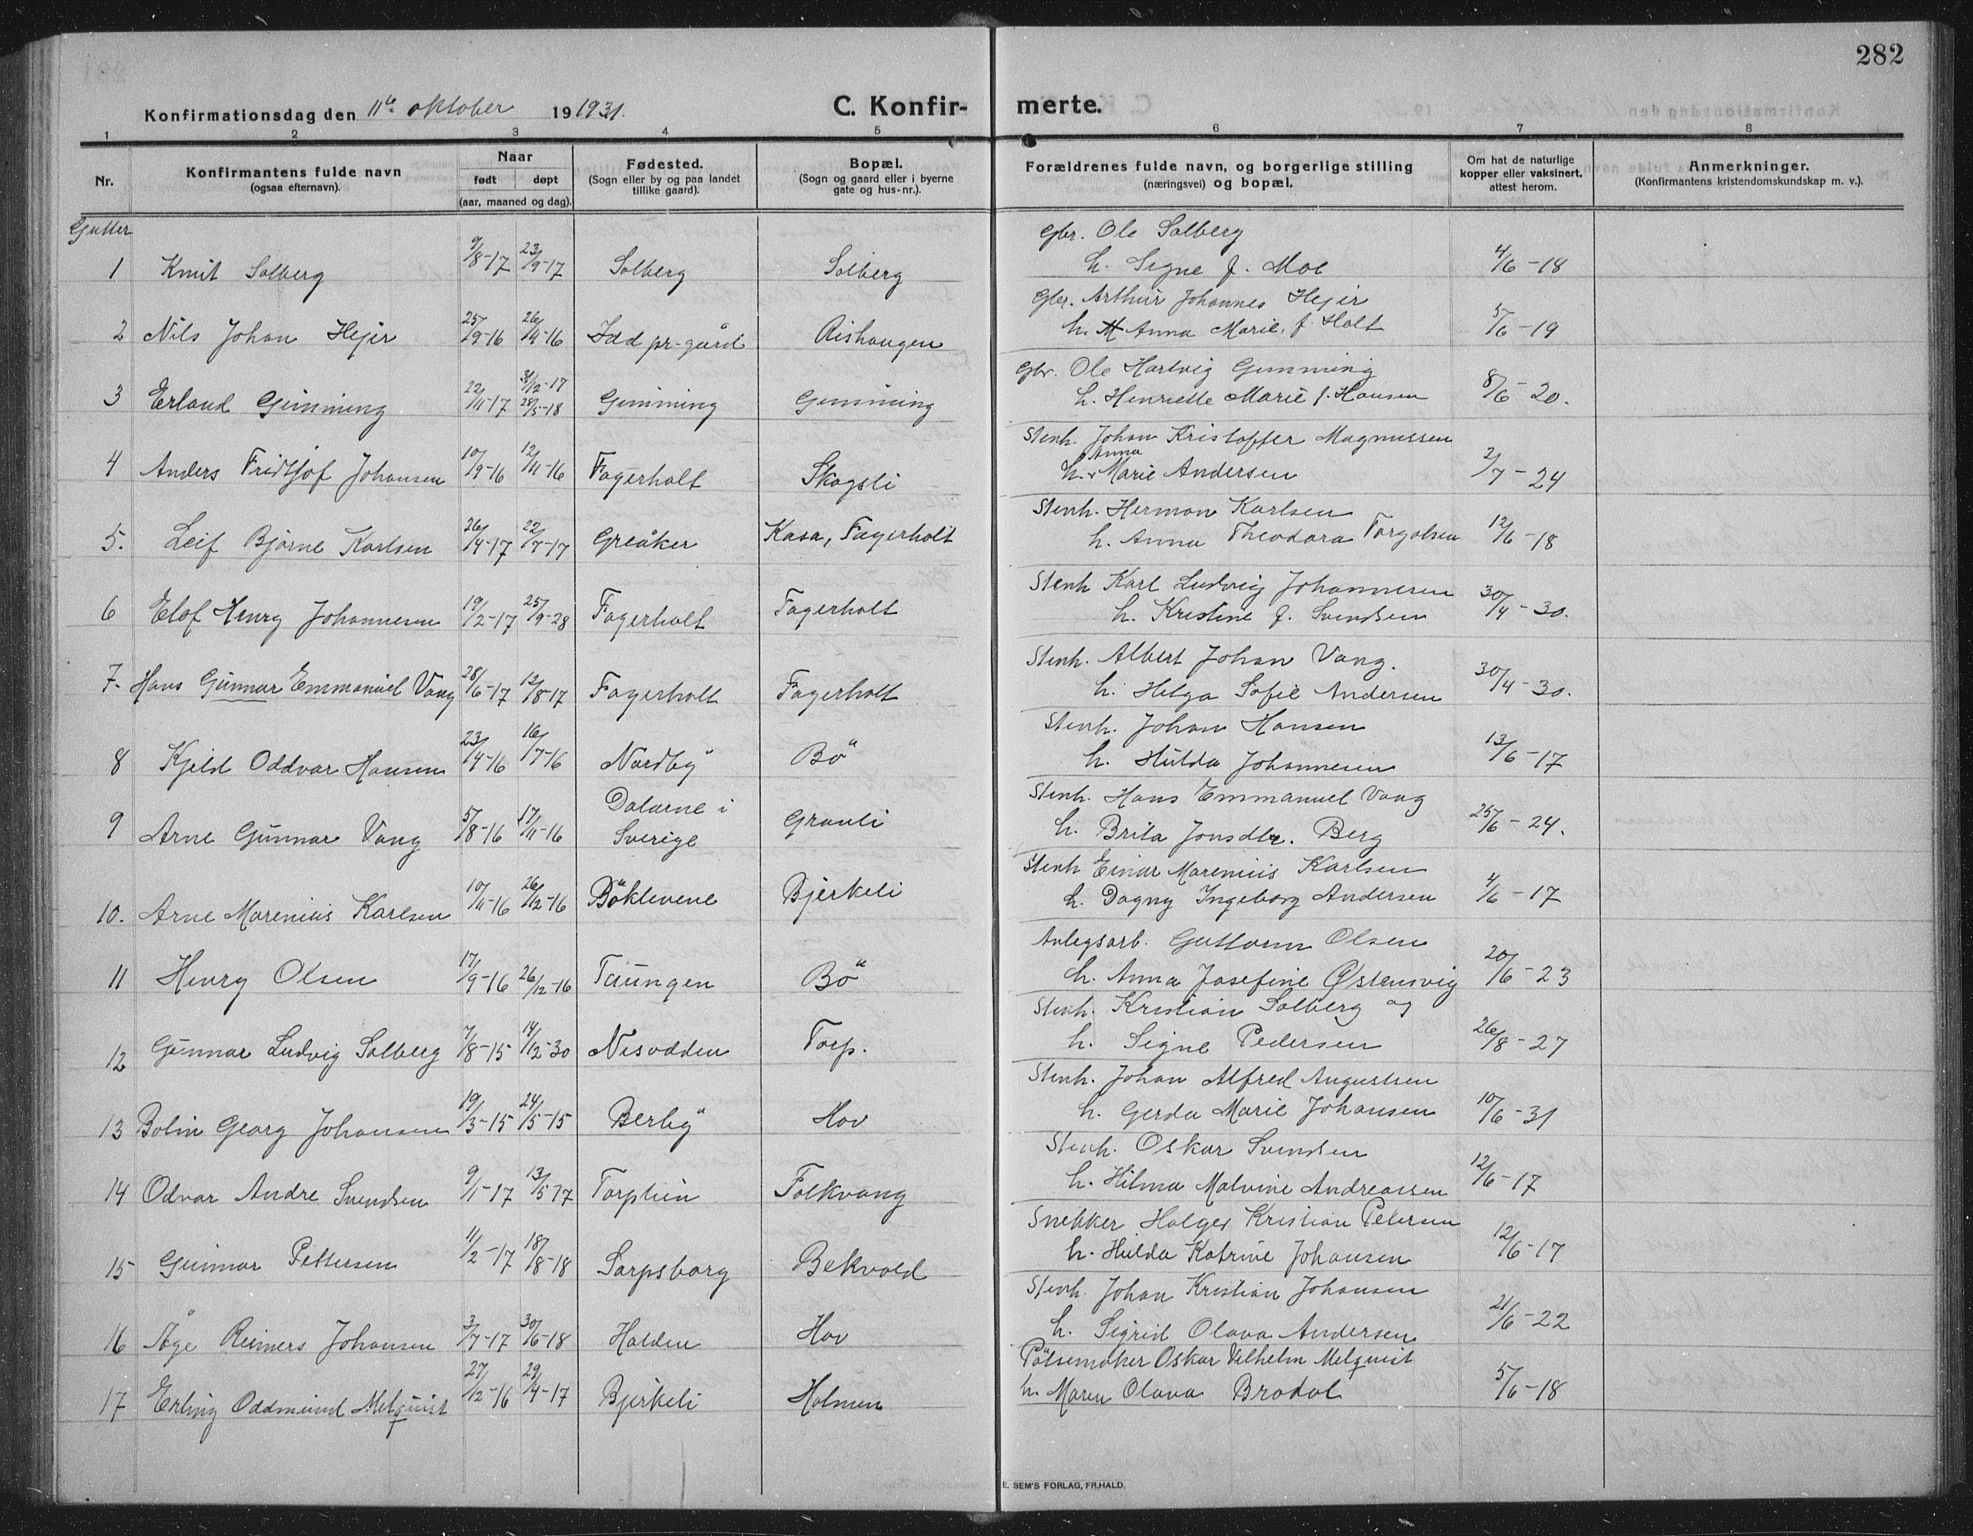 282
Konfirmationsdag den 11te oktober 19 1931.
C. Konfir-
merte.
1 2 3 4 5 6 7 8
Nr.
Konfirmantens fulde navn
(ogsaa efternavn).
Naar
født døpt
(aar, maaned og dag).
Fødested.
(Sogn eller by og paa landet
tillike gaard).
Bopæl.
(Sogn og gaard eller i byerne
gate og hus-nr.).
Forældrenes fulde navn, og borgerlige stilling
(næringsvei) og bopæl.
Om hat de naturlige
kopper eller vaksinert,
attest herom.
Anmerkninger.
(Konfirmantens kristendomskundskap m. v.).
Gutter
Gbr. Ole Solberg
1 Knut Solberg 9/8-17 23/9-17 Solberg Solberg h. Signe f. Moe 4/6-18
Gbr. Arthur Johannes Hejer
2 Nils Johan Hejer 25/9-16 26/11-16 Idd pr-gård Rishaugen h. Anna Marie f. Holt 5/6-19
Gbr. Ole Hartvig Gimming
3 Erland Gimming 22/11-17 31/12-17 28/5-18 Gimming Gimming h. Henriette Marie f. Hansen 8/6-20.
Stenh. Johan Kristoffer Magnussen
Anna
4 Anders Fridtjof Johansen 10/9-16 12/11-16 Fagerholt Skogsli h. Marie Andersen 2/7-24
Stenh. Herman Karlsen
5. Leif Bjarne Karlsen 26/4-17 22/7-17 Greåker Kasa, Fagerholt h. Anna Theodora Torgalsen 12/6-18
Stenh Karl Ludvig Johannesen
6 Elof Henry Johannesen 19/2-17 25/9-28 Fagerholt Fagerholt h. Kristine f. Svendsen 30/4-30.
Stenh. Albert Johan Vang.
7. Hans Gunnar Emmanuel Vang 28/6-17 12/8-17 Fagerholt Fagerholt h. Helga Sofie Andersen 30/4-30.
Stenh. Johan Hansen
8 Kjeld Oddvar Hansen 23/4-16 16/7-16 Nordby Bö h. Hulda Johannesen 13/6-17
Stenh. Hans Emmanuel Vang
9 Arne Gunnar Vang 5/8-16 17/11-16 Dalarne i Sverige Granli h. Brita Jonsdtr. Berg 25/6-24.
Stenh Einar Marenius Karlsen
10. Arne Marenius Karlsen 10/11-16 26/12-16 Böklevene Bjerkeli h. Dagny Ingeborg Andersen 4/6-17
Anlegsarb. Guttorm Olsen
11 Henry Olsen 17/9-16 26/12-16 Taungen Bö h. Anna Josefine Østensvig 20/6-23
Stenh. Kristian Solberg og
12 Gunnar Ludvig Solberg 7/8-15 14/12-30 Nesodden Torp. h. Signe Pedersen 26/8-27
Stenh. Johan Alfred Augustsen
13 Bolin Georg Johansen 19/3-15 24/5-15 Berby Hov h. Gerda Marie Johansen 10/6-31
Stenh. Oskar Svendsen
14 Odvar Andre Svendsen 9/1-17 13/5-17 Torplein Folkvang h. Hilma Malvine Andreassen 12/6-17
Snekker Holger Kristian Petersen
15 Gunnar Pettersen 11/2-17 18/8-18 Sarpsborg Bekvold h. Hulda Katrine Johansen 12/6-17
Stenh. Johan Kristian Johansen
16 Åge Reimers Johansen 3/7-17 30/6-18 Halden Hov h. Sigrid Olava Andersen 21/6-22
Pölsemaker Oskar Vilhelm Melquist
17 Erling Oddmund Melquist 27/12-16 29/4-17 Bjerkeli Holmen h. Maren Olava Brodal 5/6-18
E. SEM'S FORLAG, FR.HALD.